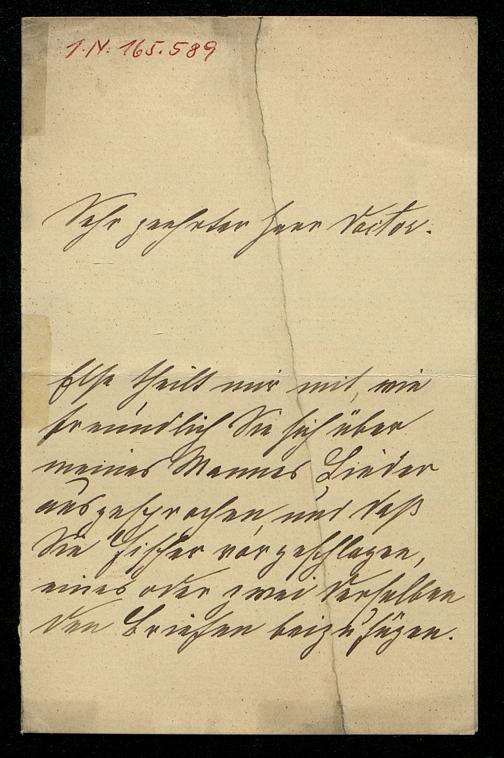 I.N. 165.589
Sehr geehrter Herr Doctor.
Else theilt mir mit, wie
freundlich Sie sich über
meines Mannes Lieder
ausgesprochen und daß
Sie Fischer vorgeschlagen,
eines oder zwei derselben
den Briefen beizufügen.